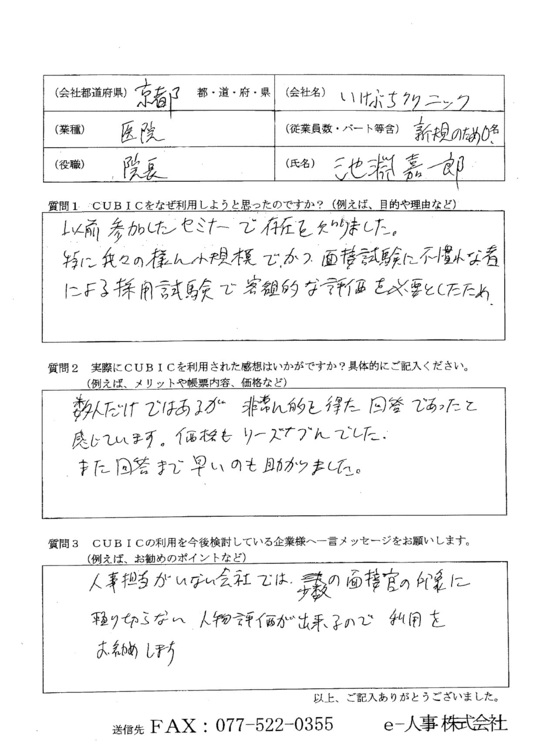 （会社都道府県） 京都 都・道・府・県 （会社名） いけぶちクリニック
（業種） 医院 （従業員数・パート等含） 新規のため0名
（役職） 院長 （氏名） 池淵嘉一郎
質問１ ＣＵＢＩＣをなぜ利用しようと思ったのですか？（例えば、目的や理由など）
以前参加したセミナーで存在を知りました。
特に我々の様な小規模で、かつ面接試験に不慣れな者
による採用試験で客観的な評価を必要としたため
質問２ 実際にＣＵＢＩＣを利用された感想はいかがですか？具体的にご記入ください。
（例えば、メリットや帳票内容、価格など）
数人だけではあるが 非常に的を得た回答であったと
感じています。価格もリーズナブルでした.
また回答まで早いのも助かりました。
質問３ ＣＵＢＩＣの利用を今後検討している企業様へ一言メッセージをお願いします。
（例えば、お勧めのポイントなど）
人事担当がいない会社では、少数の面接官の印象に
頼り切らない人物評価が出来るので 利用を
お勧めします
以上、ご記入ありがとうございました。
送信先 FAX：077-522-0355 e-人事株式会社